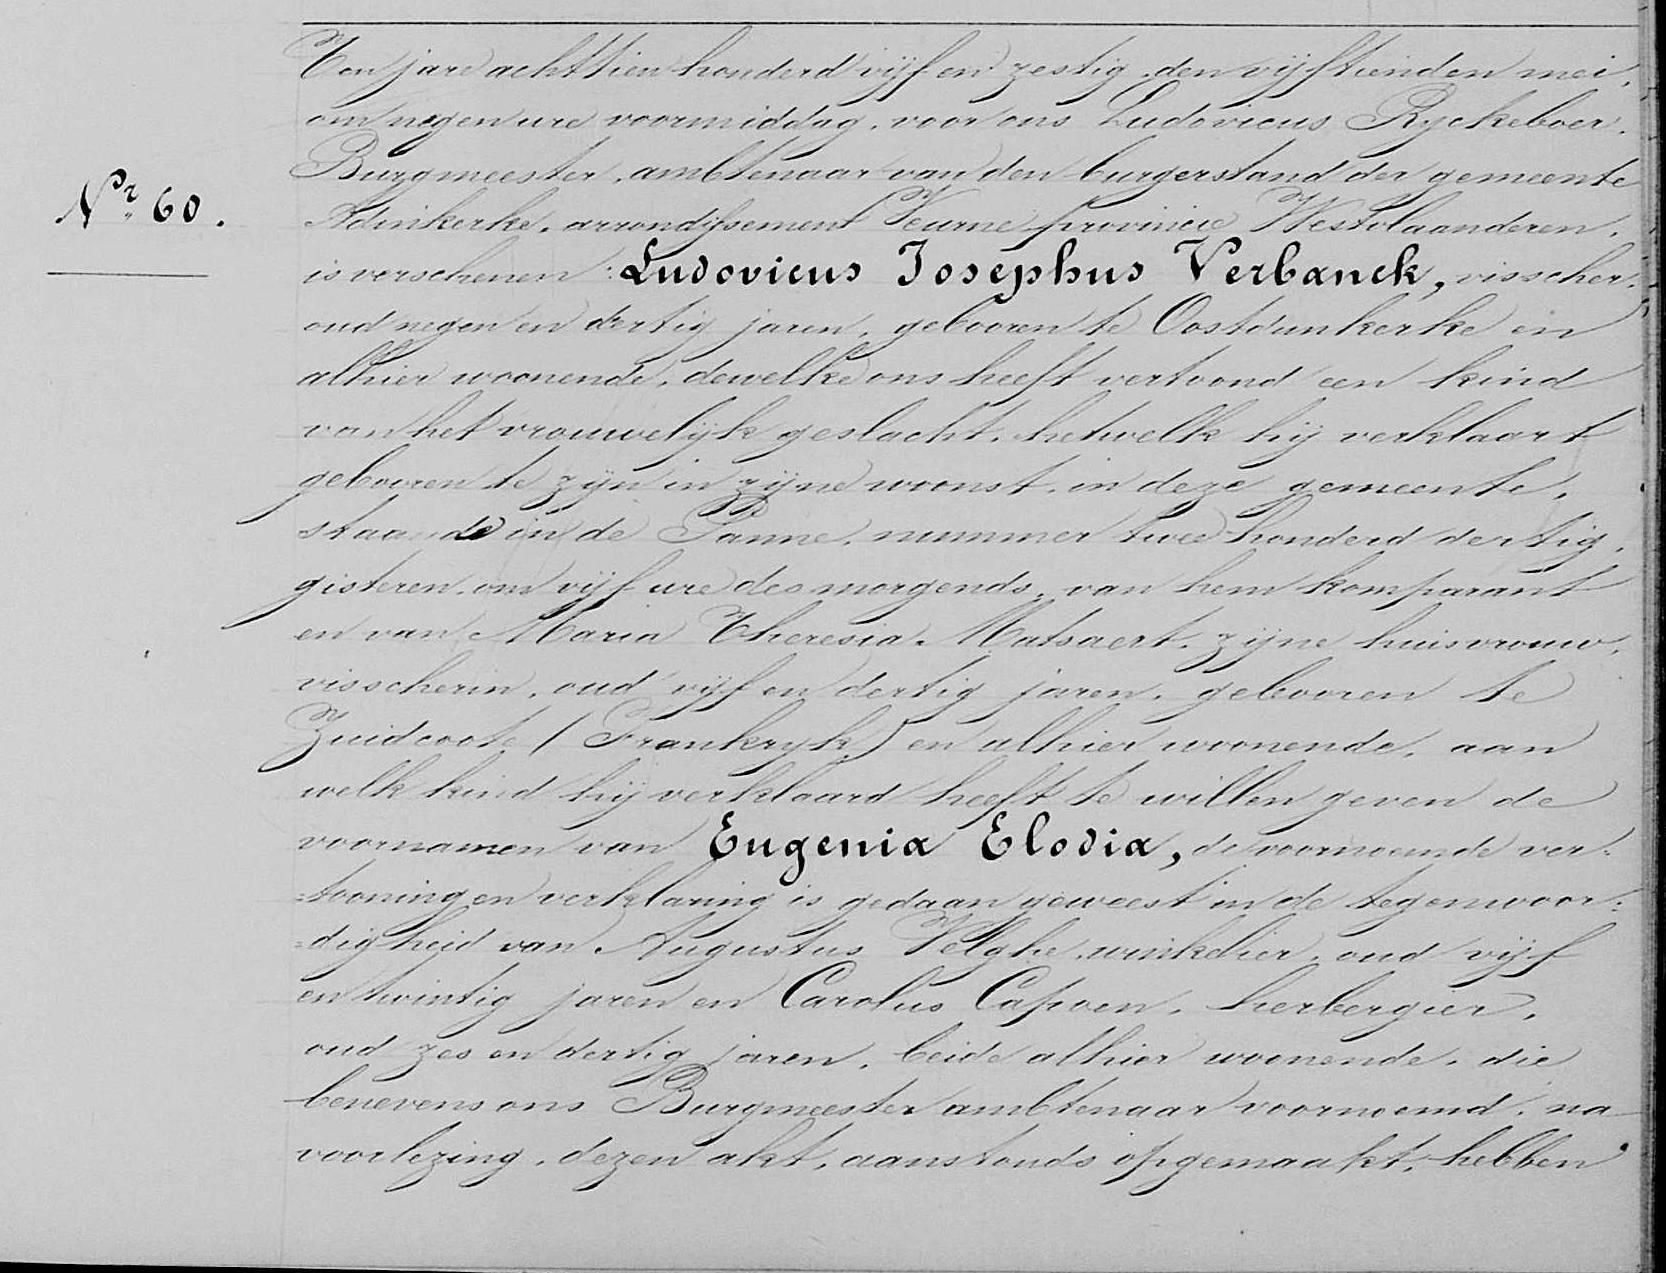 Nr. 60.
Ten jare achttien honderd vijf en zestig, den vijftienden mei,
om negen ure voormiddag, voor ons Ludovicus Ryckeboer,
Burgmeester, ambtenaar van den burgerstand der gemeente
Adinkerke, arrondissement Veurne provincie Westvlaanderen,
is verschenen: Ludovicus Josephus Verbanck, visscher,
oud negen en dertig jaren, gebooren te Oostdunkerke en
alhier woonende, dewelke ons heeft vertoond een kind
van het vrouwelijk geslacht, hetwelk hij verklaart
gebooren te zijn in zijne woonst, in deze gemeente,
staande in de Panne, nummer twee honderd dertig,
gisteren, om vijf ure des morgends, van hem komparant
en van Maria Theresia Matsaert, zijne huisvrouw,
visscherin, oud vijf en dertig jaren, gebooren te
Zuidcoote (Frankryk) en alhier woonende, aan
welk kind hij verklaard heeft te willen geven de
voornamen van Eugenia Elodia, de voornoemde ver=
=tooning en verklaring is gedaan geweest in de tegenwoor=
=digheid van Augustus Velghe, winkelier, oud vijf
en twintig jaren en Carolus Capoen, herbergier,
oud zes en dertig jaren, beide alhier woonende, die
benevens ons Burgmeester ambtenaar voornoemd, na
voorlezing, dezen akt, aanstonds opgemaakt, hebben